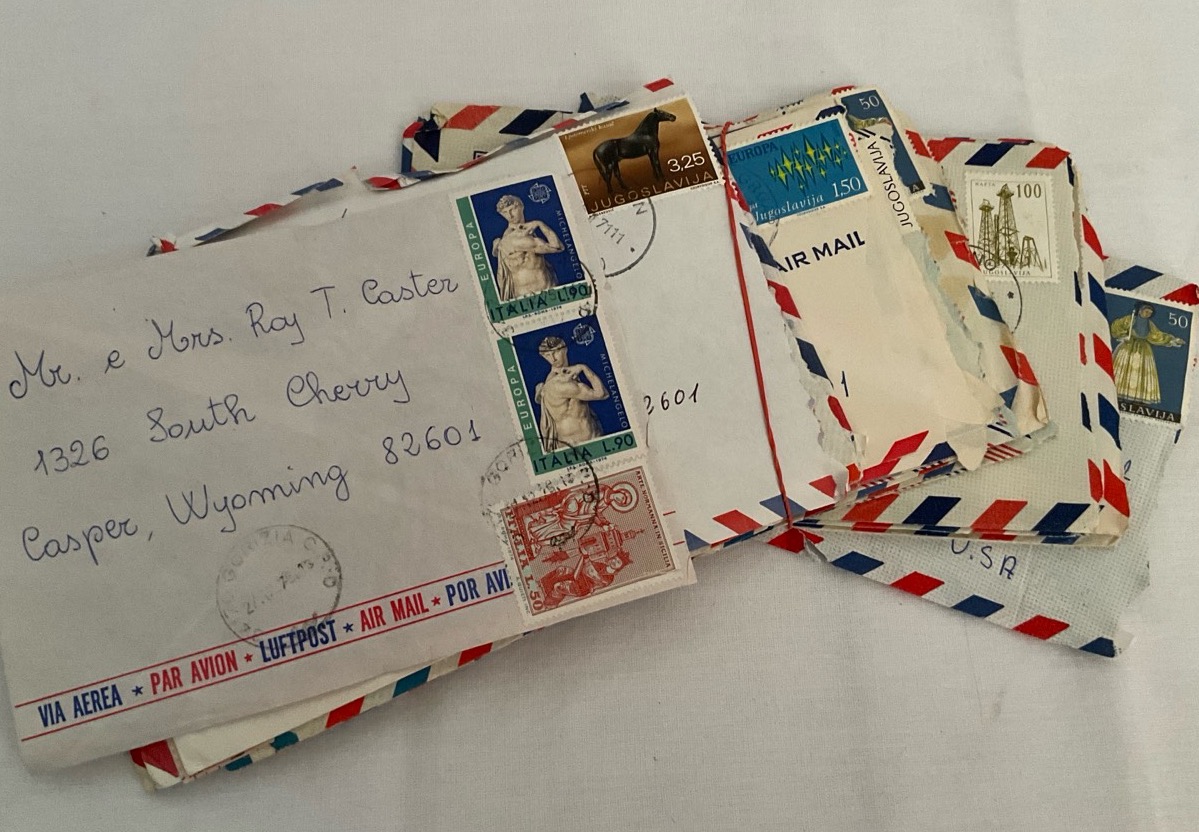 Mr. e Mrs. Roy T. Caster
1326 South Cherry
Casper, Wyoming 82601
VIA AEREA ★ PAR AVION ★ LUFTPOST ★ AIR MAIL ★ POR AVI
GORIZIA
EUROPA
MICHELANGELO
ITALIA L.90
EUROPA
MICHELANGELO
ITALIA L.90
ARTE NORMANNA IN SICILIA
ITALIA L.50
3,25
JUGOSLAVIJA
2601
EUROPA
1,50
Jugoslavija
AIR MAIL
1
50
JUGOSLAVIJA
НАФТА 100
JUGOSLAVIJA
50
SLAVIJA
U.SA